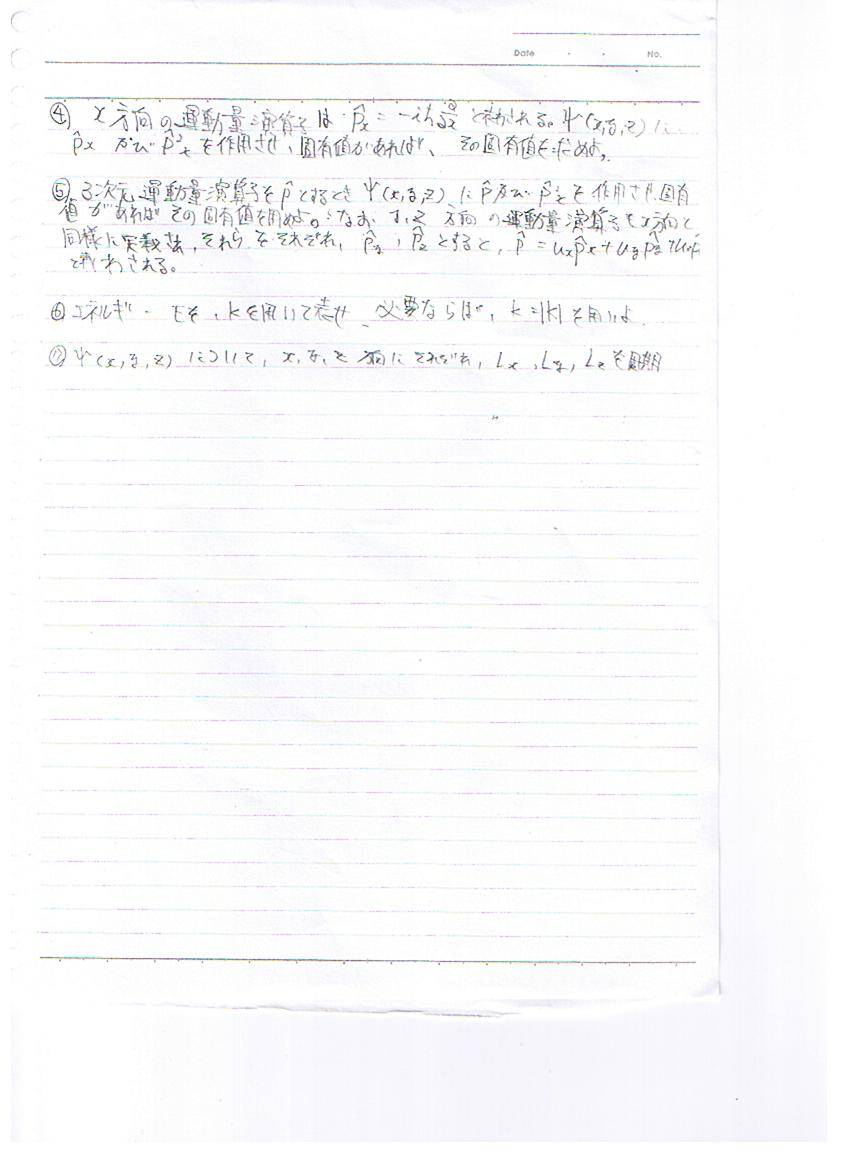 Date ・ ・ No.
④ x方向の運動量演算子は p̂x = -iħ ∂/∂x と表わされる。Ψ(x,y,z)に
p̂x 及び p̂²x を作用させ、固有値があれば、その固有値を
⑤ 3次元運動量演算子を p̂ とするとき Ψ(x,y,z) に p̂ 及び p̂² を作用させ固有
値があればその固有値を なお y,z 方向の運動量演算子もx方向と
同様に 、それらをそれぞれ、p̂y , p̂z とすると, p̂ = uxp̂x + uyp̂y +
と表わされる。
⑥ エネルギー Eを、kを用いて表せ 必要ならば, k=|k| を用いよ.
⑦ Ψ(x,y,z) について, x,y,z 方向にそれぞれ, Lx , Ly, Lz を周期